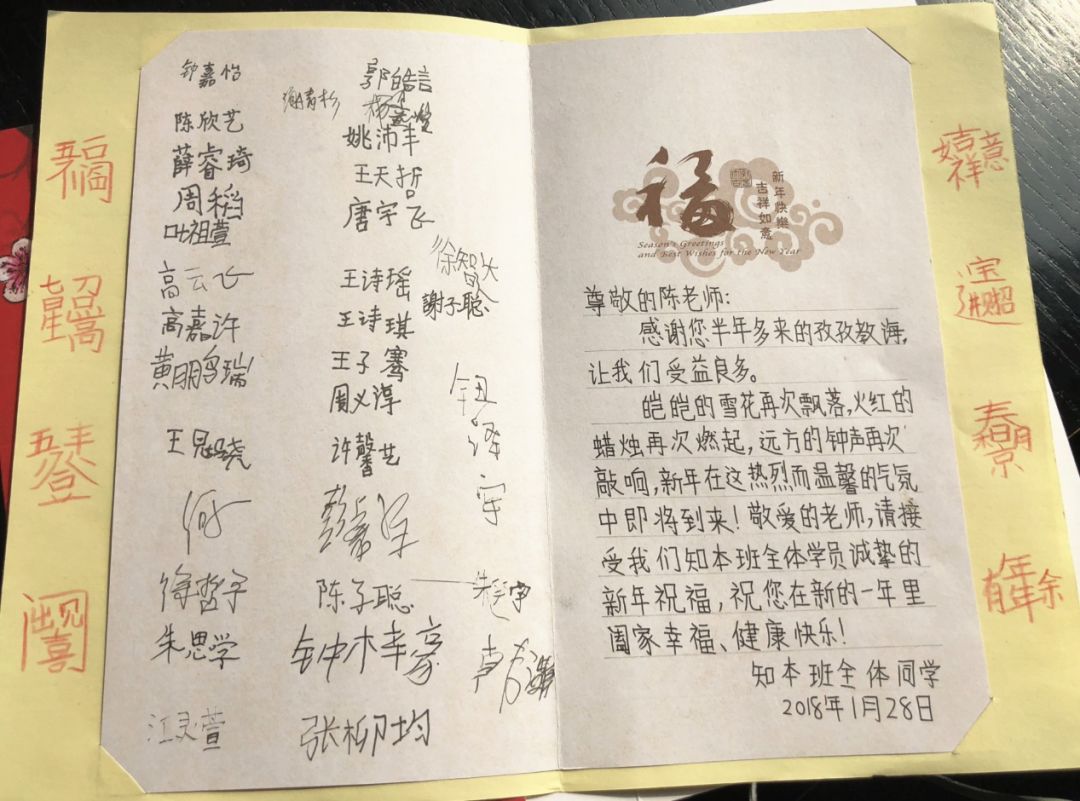 钟嘉怡
陈欣艺
薛睿琦
周稻
叶祖萱
高云飞
高嘉许
黄鹏瑞
王冕晓
何
徐哲宇
朱思学
江灵萱
郭皓言
谢青杉
姚沛丰
王天哲
唐宇飞
徐智
谢子聪
王诗瑶
王诗琪
王子骞
周义淳
许馨艺
陈子聪
张柳均
福
新年快樂
吉祥如意
Season's Greetings
and Best Wishes for the New Year
尊敬的陈老师:
感谢您半年多来的孜孜教海,
让我们受益良多。
皑皑的雪花再次飘落,火红的
蜡烛再次燃起,远方的钟声再次
敲响,新年在这热烈而温馨的气氛
中即将到来!敬爱的老师,请接
受我们知本班全体学员诚挚的
新年祝福,祝您在新的一年里
阖家幸福、健康快乐!
知本班全体同学
2018年1月28日